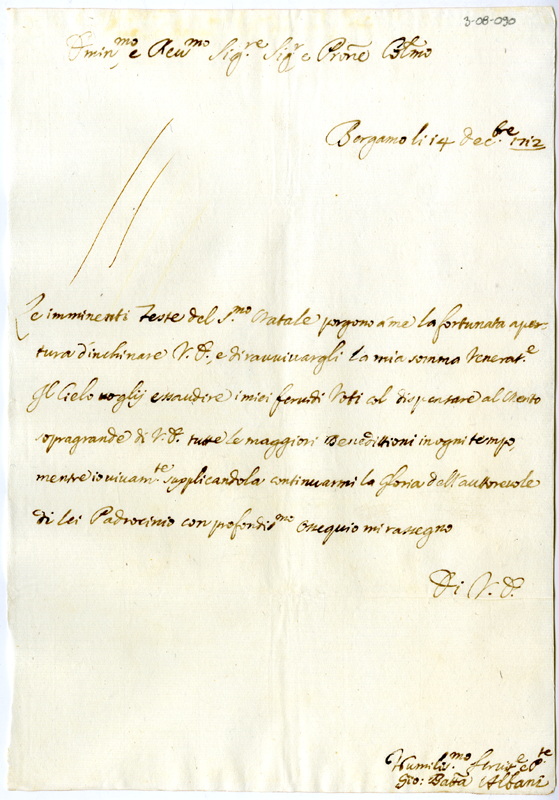 3-08-090
Emin.mo e Reu.mo Sig.re Sig.r e Prōne Col.mo
Bergamo li 14 dec.bre 1712
Le imminenti Feste del S.mo Natale porgono a me la fortunata aper-
tura d'inchinare V. E., e di ravvivargli la mia somma Venerat.e
Il Cielo voglij essaudire i miei feruidi Voti col dispensare al Merito
sopragrande di V. E. tutte le maggiori Benedittioni in ogni tempo,
mentre io vivam.te supplicandola continuarmi la Gloria dell'autorevole
di lei Padrocinio con profondis.mo Ossequio mi rassegno
Di V. E.
Humilis.mo
Gio: Batta Albani